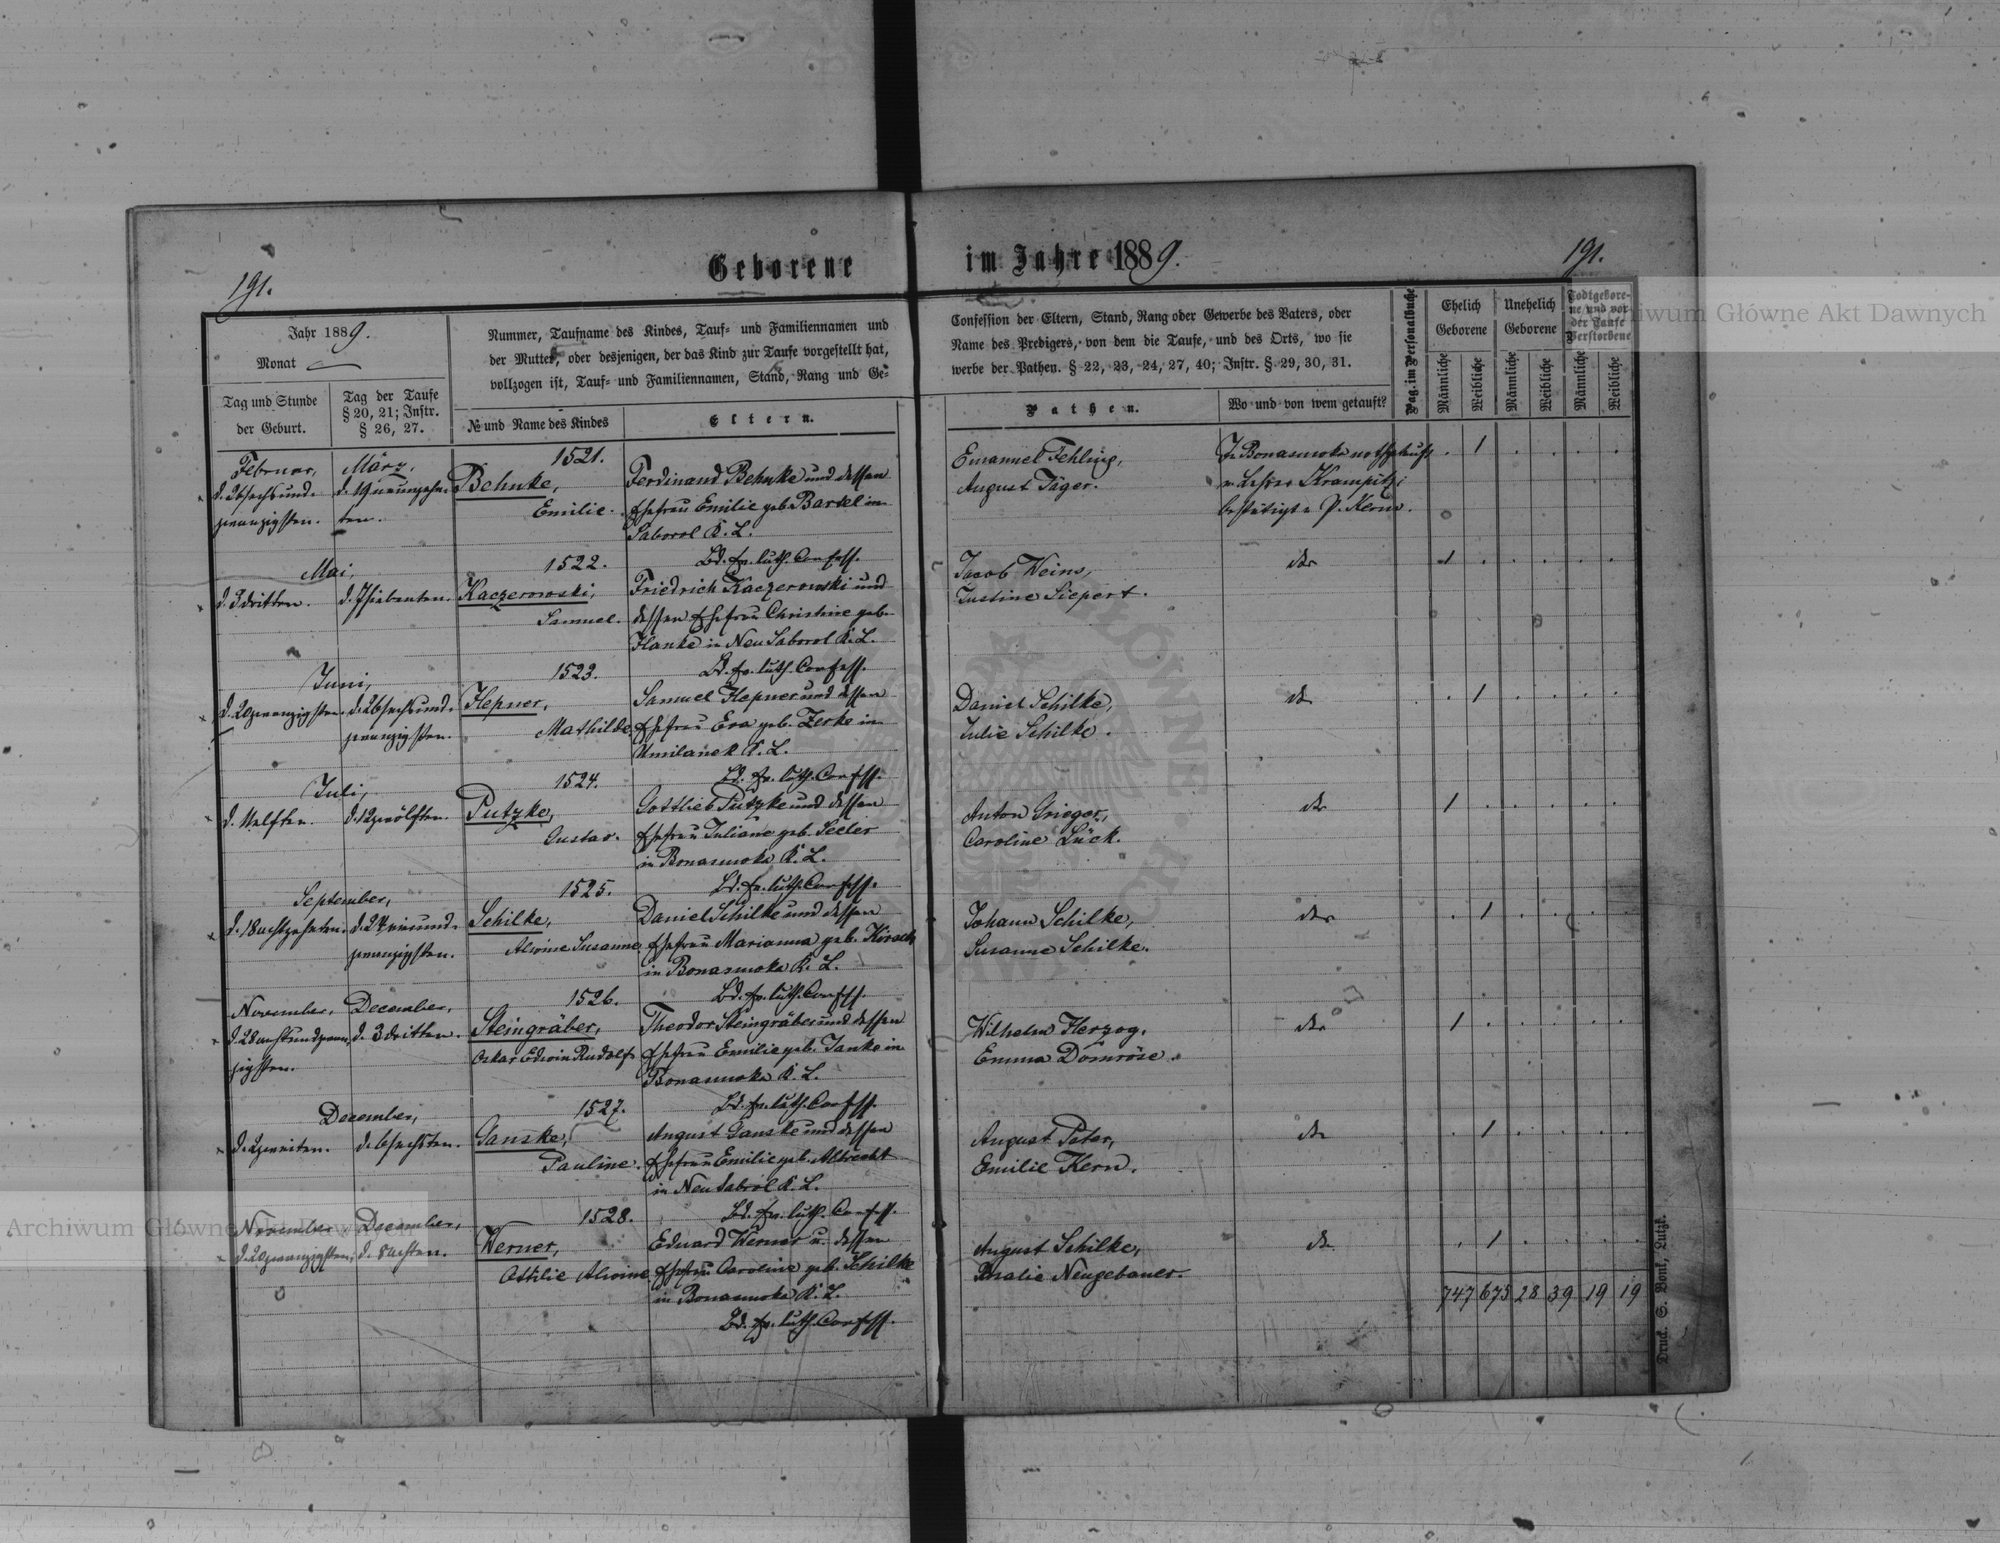 Geborene im Jahre 1889.
191. 191.
Jahr 1889.
Monat
Tag und Stunde
der Geburt.
Tag der Taufe
§ 20, 21; Instr.
§ 26, 27.
Nummer, Taufname des Kindes, Tauf= und Familiennamen und
der Mutter, oder desjenigen, der das Kind zur Taufe vorgestellt hat,
vollzogen ist, Tauf= und Familiennamen, Stand, Rang und Ge=
№ und Name des Kindes
Eltern.
Confession der Eltern, Stand, Rang oder Gewerbe des Vaters, oder
Name des Predigers, von dem die Taufe, und des Orts, wo sie
werbe der Pathen. § 22, 23, 24, 27, 40; Instr. § 29, 30, 31.
Pathen.
Wo und von wem getauft?
Pag. im Personalbuche
Ehelich
Geborene
Unehelich
Geborene
Todtgebore=
ne und vor
der Taufe
Verstorbene
Männliche
Weibliche
Männliche
Weibliche
Männliche
Weibliche
Februar, März, 1521.
d. 26 sechsund- d. 19 neunzehn- Behnke, Ferdinand Behnke und dessen
zwanzigsten. ten. Emilie. Ehefrau Emilie geb. Bartel in
Saborol K. L.
Bd. ev. luth. Confess.
Emanuel Fehling,
August Jäger.
In Bonasuwka nothgetauft
v. Lehrer Krampitz;
bestätigt v. P. Kern.
1
Mai, 1522.
d. 3 dritten. d. 7 siebenten. Kaczerowski, Friedrich Kaczerowski und
Samuel. dessen Ehefrau Christine geb.
Hanke in Neu Saborol K. L.
Bd. ev. luth. Confess.
Jacob Weins,
Justine Siepert.
1
Juni, 1523.
d. 20 zwanzigsten. d. 26 sechsund- Hepner, Samuel Hepner und dessen
zwanzigsten. Mathilde Ehefrau Eva geb. Zerke in
Umilanek K. L.
Bd. ev. luth. Confess.
Daniel Schilke,
Julie Schilke.
1
Juli, 1524.
d. 11 elften. d. 12 zwölften. Putzke, Gottlieb Putzke und dessen
Gustav. Ehefrau Juliane geb. Seeler
in Bonasuwka K. L.
Bd. ev. luth. Confess.
Anton Grieger,
Caroline Lück.
1
September, 1525.
d. 18 achtzehnten. Schilke, Daniel Schilke und dessen
zwanzigsten. Alwine Susanne Ehefrau Marianna geb. Kirsch
in Bonasuwka K. L.
Bd. ev. luth. Confess.
Johann Schilke,
Susanne Schilke.
1
November, December, 1526.
d. 28 achtundzwan- d. 3 dritten. Steingräber, Theodor Steingräber und dessen
zigsten. Oskar Edwin Rudolf Ehefrau Emilie geb. Janke in
Bonasuwka K. L.
Bd. ev. luth. Confess.
Wilhelm Herzog,
Emma Domröse.
1
December, 1527.
d. 2 zweiten. d. 6 sechsten. Ganske, August Ganske und dessen
Pauline. Ehefrau Emilie geb. Albrecht
in Neu Sabrol K. L.
Bd. ev. luth. Confess.
August Peter,
Emilie Kern.
1
November December, 1528.
d. 20 zwanzigsten. d. 8 achten. Werner, Eduard Werner u. dessen
Ottilie Alwine Ehefrau Caroline geb. Schilke
in Bonasuwka K. L.
Bd. ev. luth. Confess.
August Schilke,
Rosalie Neugebauer.
1
747 675 28 39 19 19
Druck. S. Bonk, Lutzk.
Archiwum Główne Akt Dawnych
Archiwum Główne Akt Dawnych